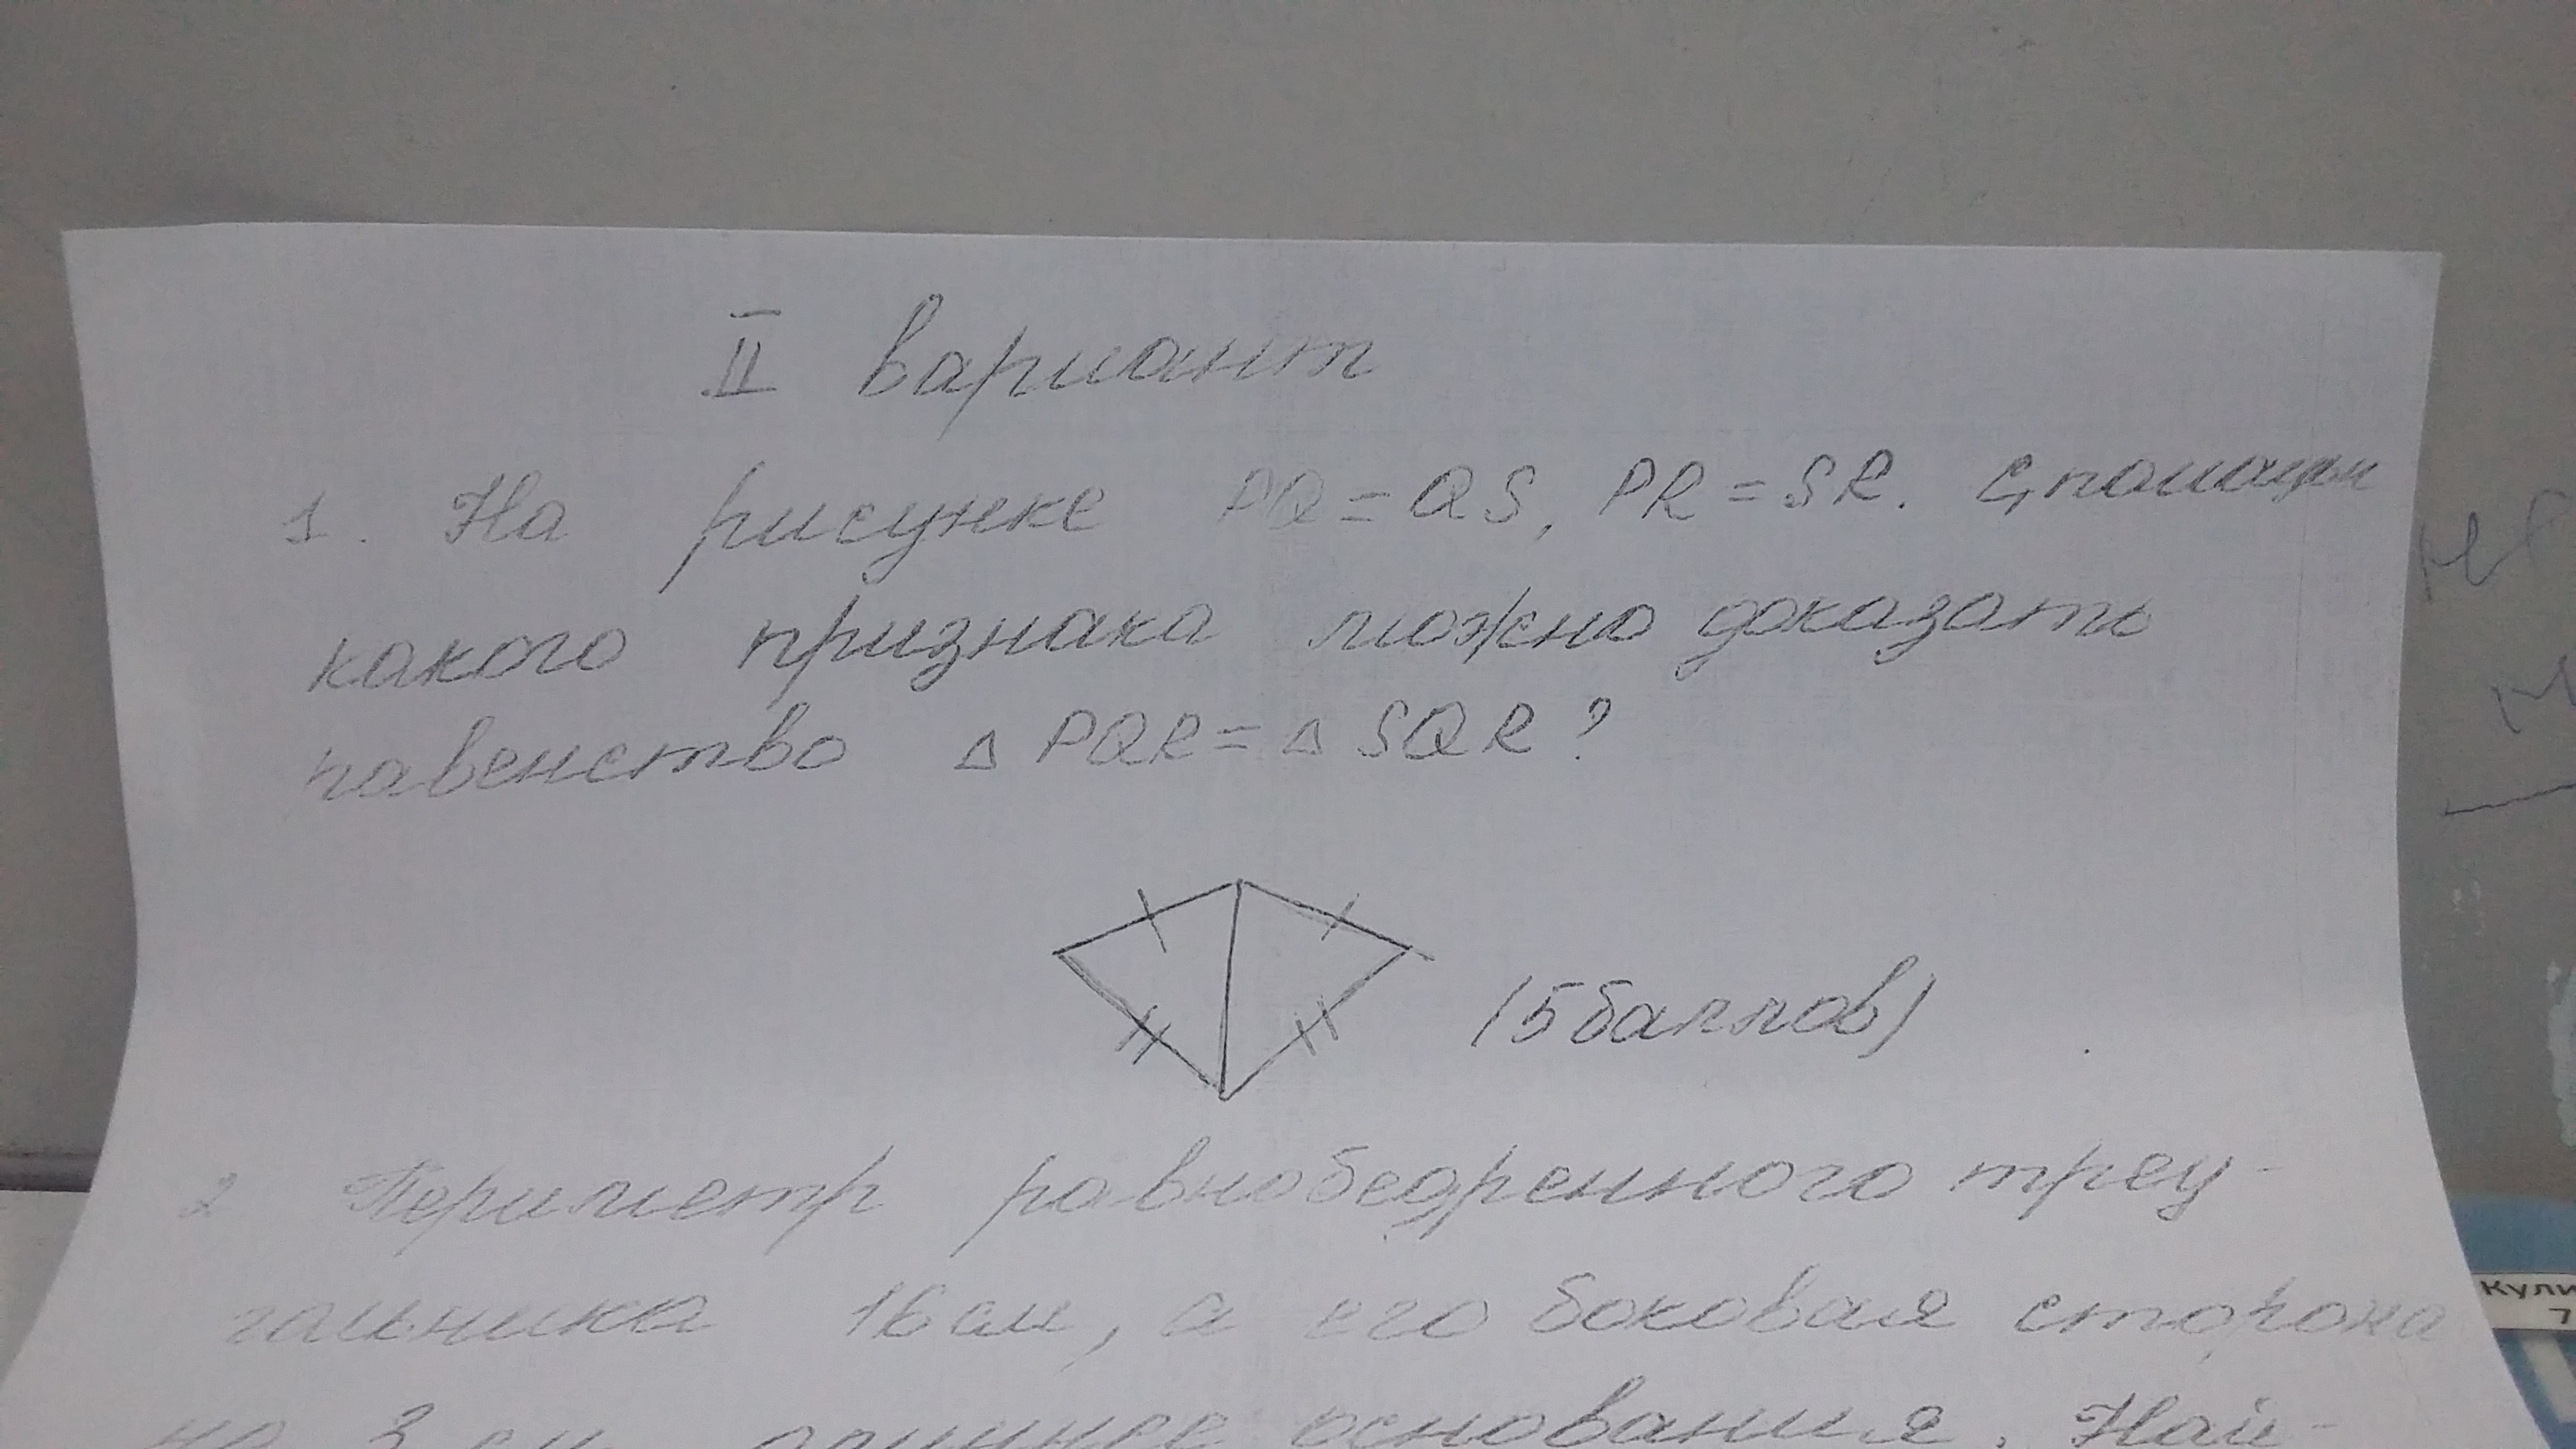 II вариант
1. На рисунке PQ = QS, PR = SR. С помощью
какого признака можно доказать
равенство △ PQR = △ SQR?
(5 баллов)
2 Периметр равнобедренного треу-
гольника 16 см, а его боковая сторона
на 3 см длиннее основания. Най-
Кули
7